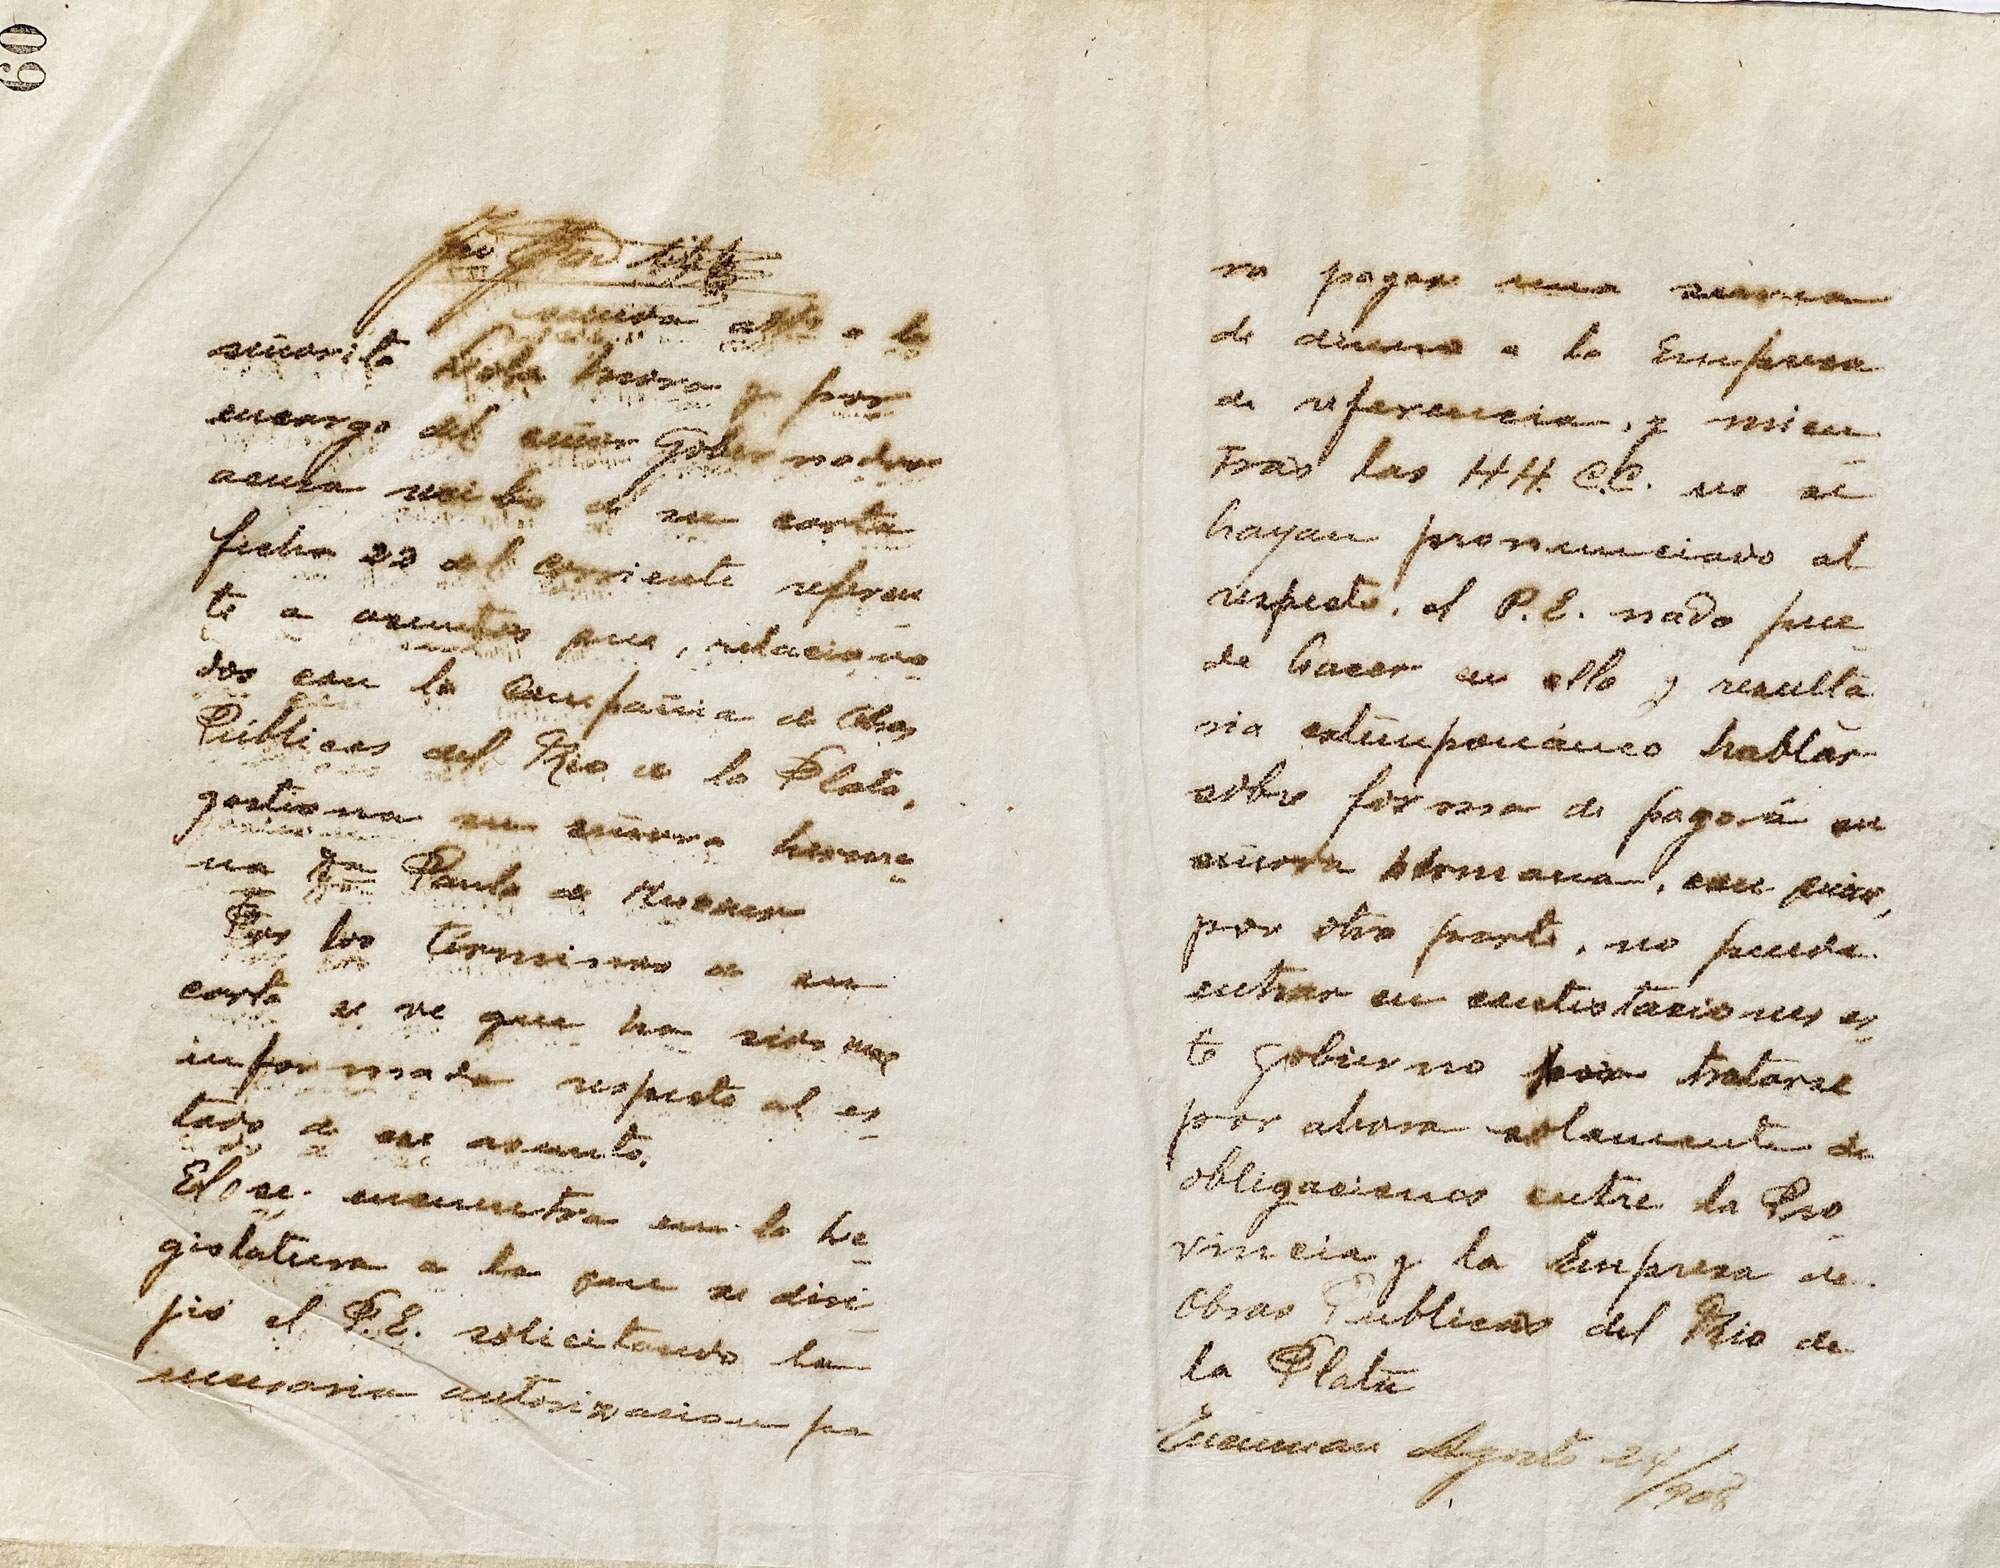 60
saluda atte a la
señorita Lola Mora y por
encargo del señor Gobernador
acusa recibo de su carta
fecha 20 del corriente referen
te a asuntos que, relaciona
dos con la Compañia de Obras
Públicas del Rio de la Plata,
gestiona su señora herma-
na Da Paula de
Por los términos de su
carta se ve que ha sido mal
informada respecto al es-
tado de ese asunto.
El se encuentra en la Le-
gislatura a la que se diri-
jió el P.E. solicitando la
necesaria autorizacion pa
ra pagar una suma
de dinero a la Empresa
de referencia, y mien
tras las HH. C.C. no se
hayan pronunciado al
respecto, el P.E. nada pue-
de hacer en ello y resulta
ria extemporáneo hablar
sobre forma de pago á su
señora hermana, con quien,
por otra parte, no puede
entrar en contestaciones es-
te Gobierno por tratarse
por ahora solamente de
obligaciones entre la Pro-
vincia y la Empresa de
Obras Publicas del Rio de
la Plata
Tucuman Agosto 24/908